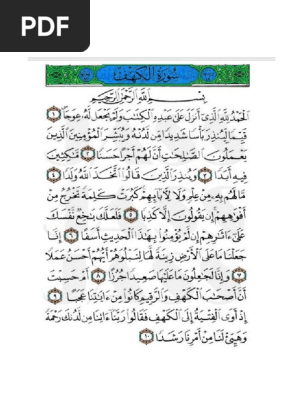 PDF
سُورَةُ الكَهْفِ
بِسْمِ اللَّهِ الرَّحْمَٰنِ الرَّحِيمِ
الْحَمْدُ لِلَّهِ الَّذِي أَنزَلَ عَلَىٰ عَبْدِهِ الْكِتَٰبَ وَلَمْ يَجْعَل لَّهُ عِوَجًا ١
قَيِّمًا لِّيُنذِرَ بَأْسًا شَدِيدًا مِّن لَّدُنْهُ وَيُبَشِّرَ الْمُؤْمِنِينَ الَّذِينَ
يَعْمَلُونَ الصَّٰلِحَٰتِ أَنَّ لَهُمْ أَجْرًا حَسَنًا ٢ مَّٰكِثِينَ
فِيهِ أَبَدًا ٣ وَيُنذِرَ الَّذِينَ قَالُوا اتَّخَذَ اللَّهُ وَلَدًا ٤
مَّا لَهُم بِهِ مِنْ عِلْمٍ وَلَا لِآبَائِهِمْ كَبُرَتْ كَلِمَةً تَخْرُجُ مِنْ
أَفْوَٰهِهِمْ إِن يَقُولُونَ إِلَّا كَذِبًا ٥ فَلَعَلَّكَ بَٰخِعٌ نَّفْسَكَ
عَلَىٰ ءَاثَٰرِهِمْ إِن لَّمْ يُؤْمِنُوا بِهَٰذَا الْحَدِيثِ أَسَفًا ٦ إِنَّا
جَعَلْنَا مَا عَلَى الْأَرْضِ زِينَةً لَّهَا لِنَبْلُوَهُمْ أَيُّهُمْ أَحْسَنُ عَمَلًا
٧ وَإِنَّا لَجَٰعِلُونَ مَا عَلَيْهَا صَعِيدًا جُرُزًا ٨ أَمْ حَسِبْتَ
أَنَّ أَصْحَٰبَ الْكَهْفِ وَالرَّقِيمِ كَانُوا مِنْ ءَايَٰتِنَا عَجَبًا ٩
إِذْ أَوَى الْفِتْيَةُ إِلَى الْكَهْفِ فَقَالُوا رَبَّنَا ءَاتِنَا مِن لَّدُنكَ رَحْمَةً
وَهَيِّئْ لَنَا مِنْ أَمْرِنَا رَشَدًا ١٠